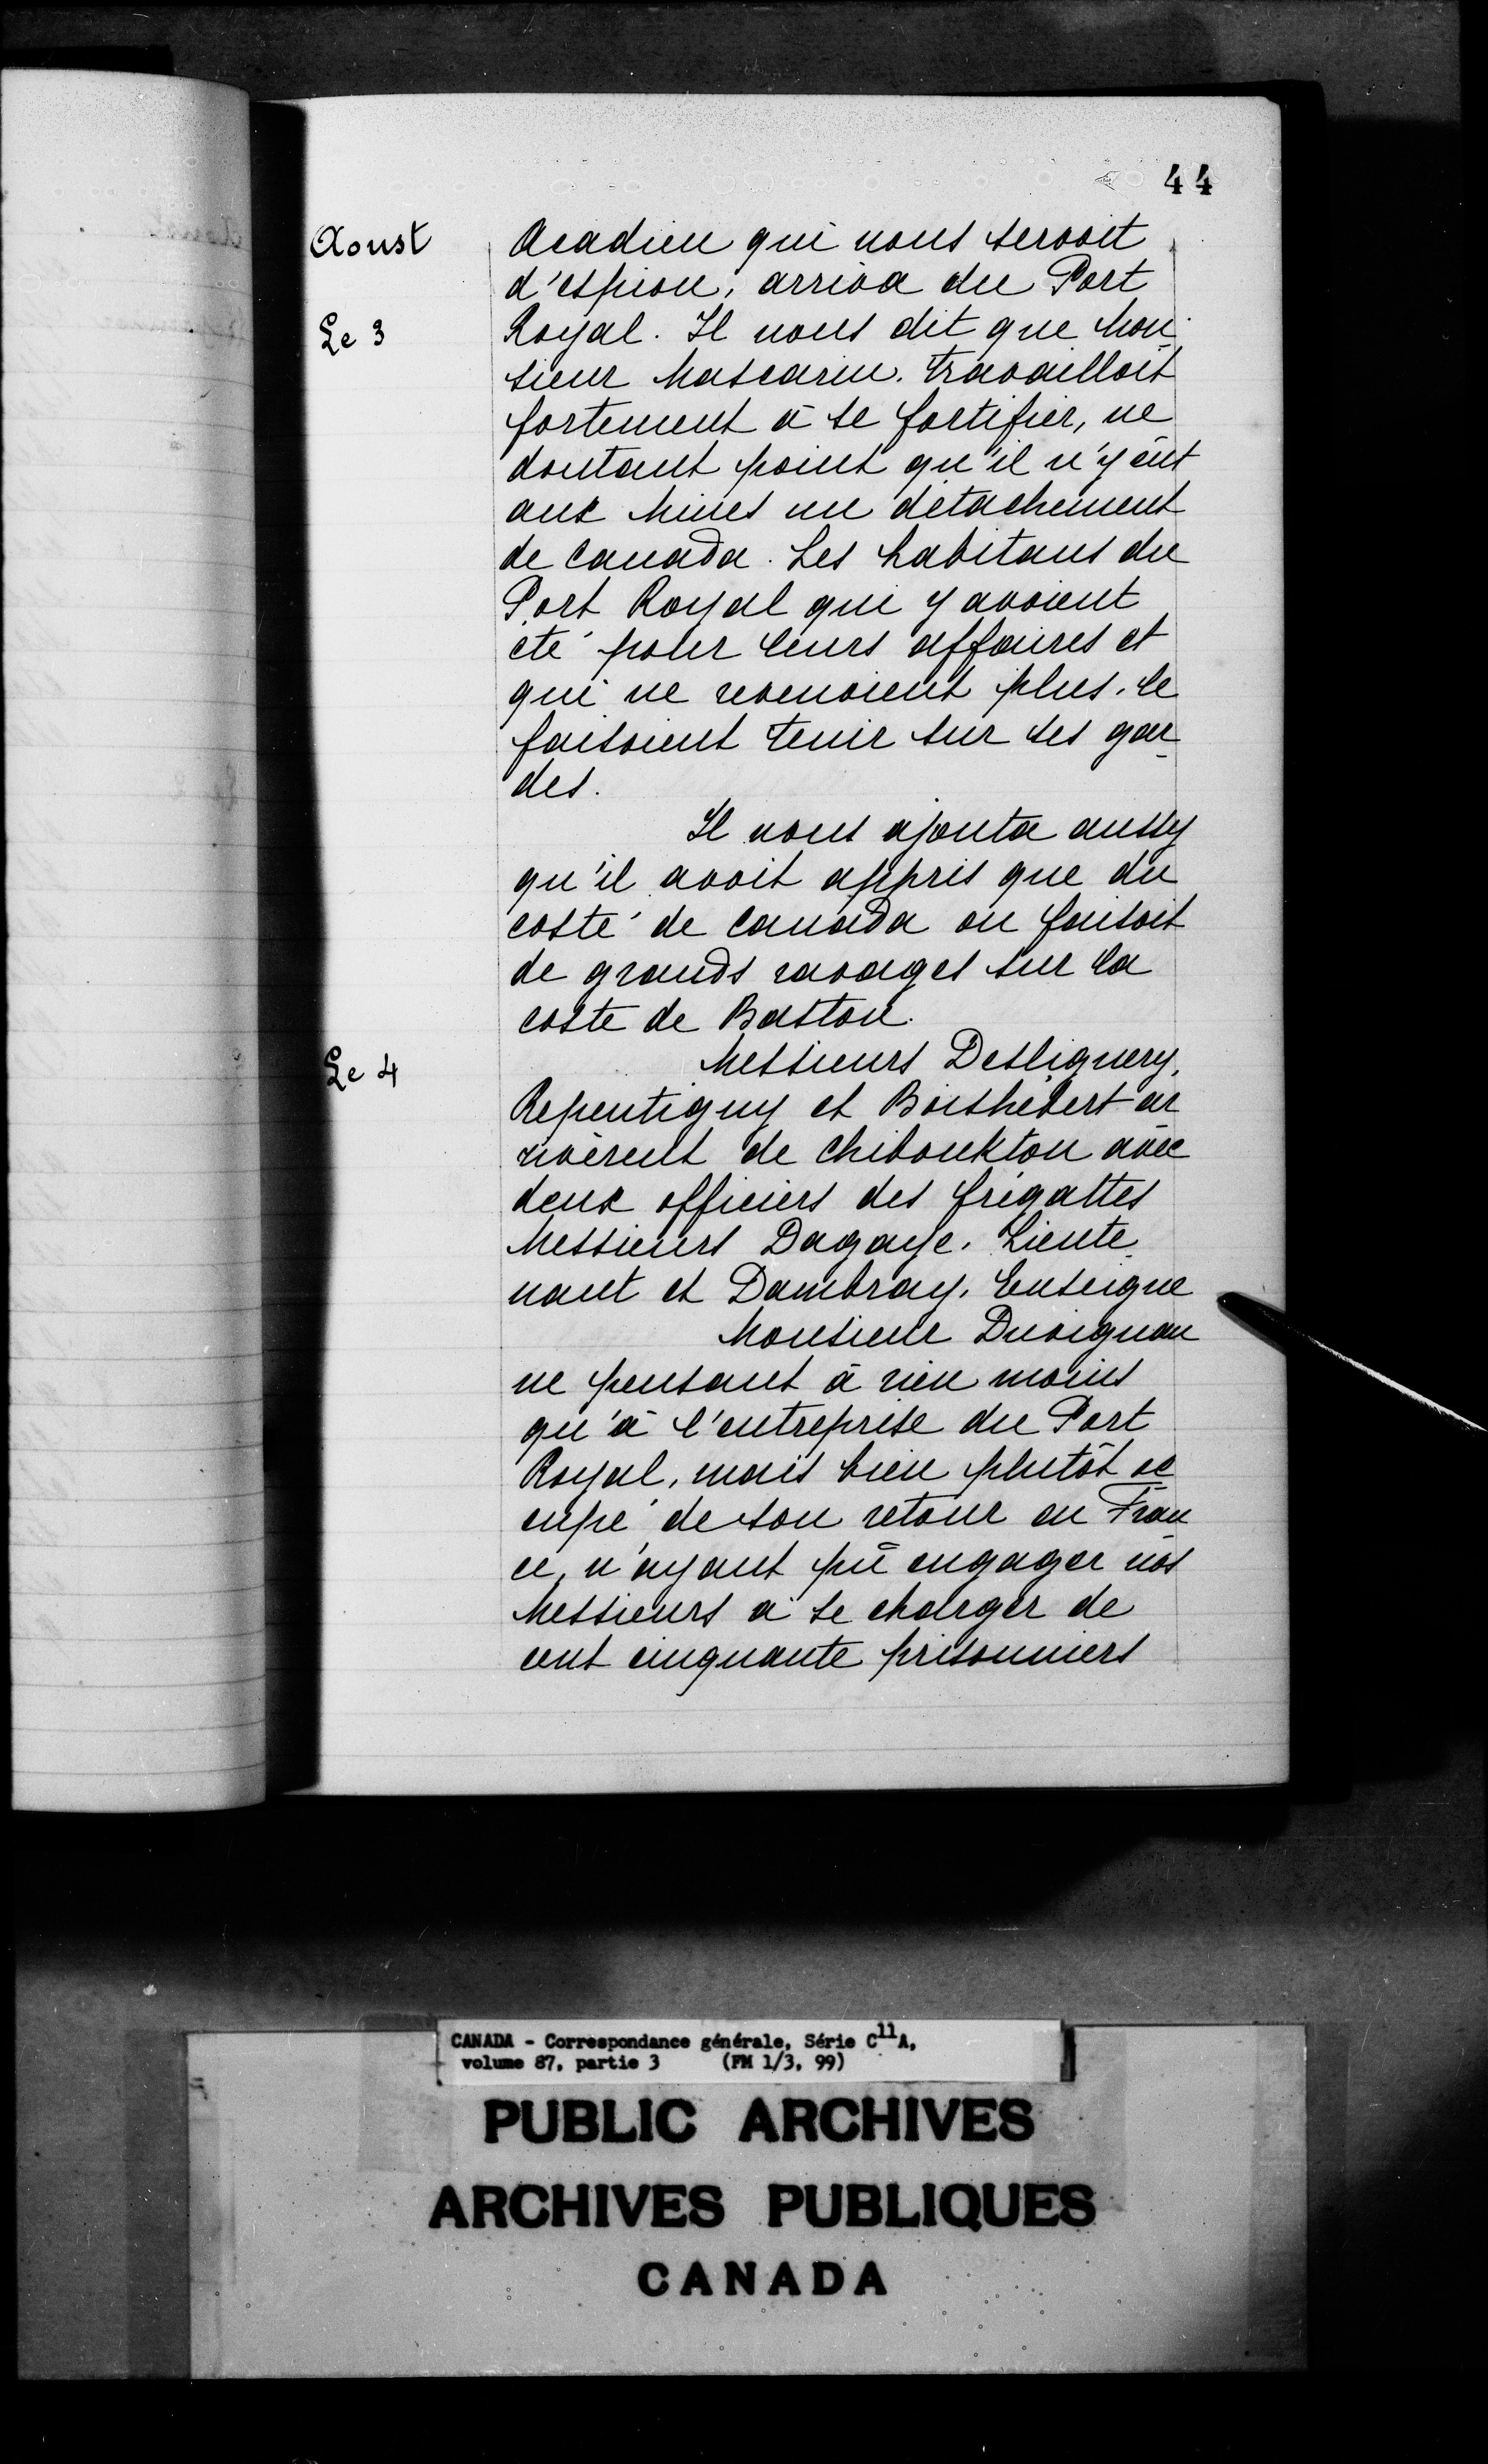 44
Aoust
Acadien qui nous servoit
d'espion, arriva du Port
Le 3
Royal. Il nous dit que Mon-
sieur Mascarin, travailloit
fortement à se fortifier, ne
doutant point qu'il n'y eût
aux Mines un détachement
de Canada. Les habitans du
Port Royal qui y avoient
été pour leurs affaires et
qui ne revenoient plus, le
faisoient tenir sur ses gar-
des.
Il nous ajouta aussy
qu'il avoit appris que du
costé de Canada on faisoit
de grands ravages sur la
coste de Baston.
Le 4
Messieurs Deslignery,
Repentigny et Boishébert ar
rivèrent de Chibouktou avec
deux officiers des frégattes
Messieurs Dagaye, Lieute-
nant et Dambray, Enseigne
Monsieur Duvignau
ne pensant à rien moins
qu'à l'entreprise du Port
Royal, mais bien plutôt oc
cupé de son retour en Fran
ce, n'ayant pû engager nos
Messieurs à se charger de
cent cinquante prisonniers
CANADA - Correspondance générale, Série C11A,
volume 87, partie 3 (FM 1/3, 99)
PUBLIC ARCHIVES
ARCHIVES PUBLIQUES
CANADA